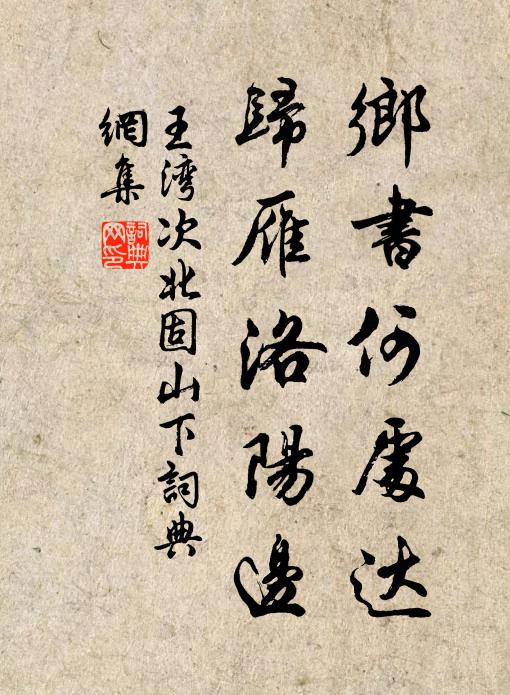 鄉書何處达
歸雁洛陽邊
王湾次北固山下詞典
網集
詞典
网印